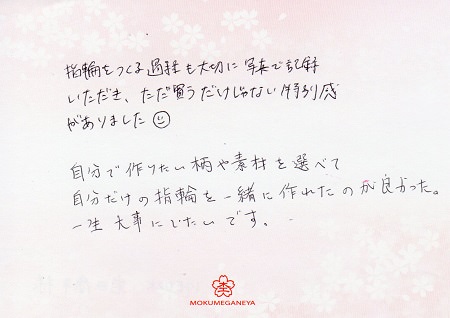 指輪をつくる過程も大切に写真で記録
いただき、ただ買うだけじゃない特別感
がありました☺
自分で作りたい柄や素材を選べて
自分だけの指輪を一緒に作れたのが良かった。
一生大事にしたいです。
MOKUMEGANEYA